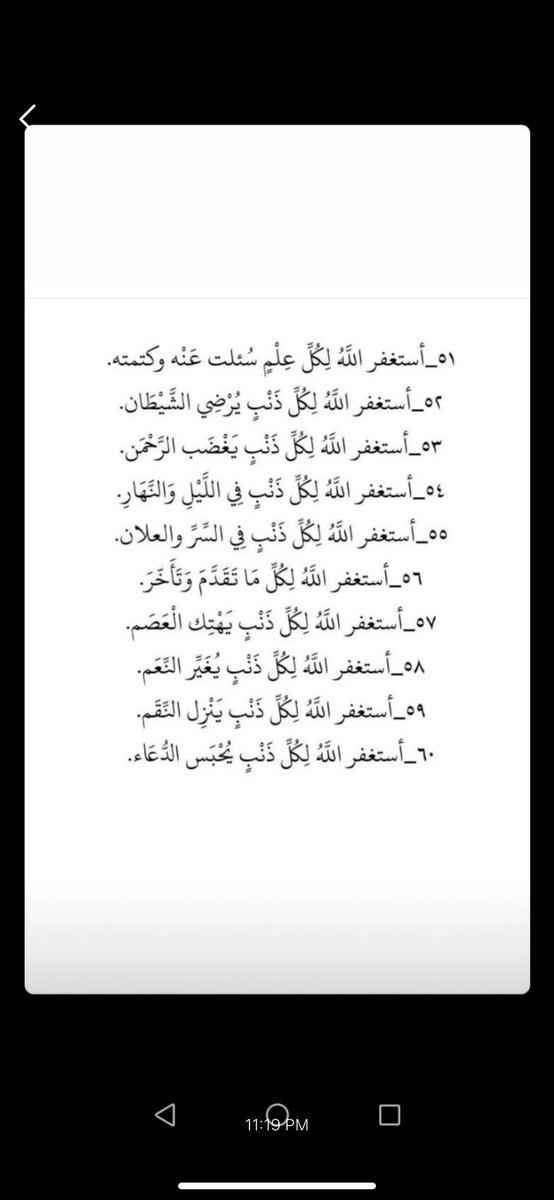 ٥١_أستغفر اللَّهُ لِكُلِّ عِلْمٍ سُئلت عَنْه وكتمته.
٥٢_أستغفر اللَّهُ لِكُلِّ ذَنْبٍ يُرْضِي الشَّيْطَان.
٥٣_أستغفر اللَّهُ لِكُلِّ ذَنْبٍ يَغْضَب الرَّحْمَن.
٥٤_أستغفر اللَّهُ لِكُلِّ ذَنْبٍ فِي اللَّيْلِ وَالنَّهَارِ.
٥٥_أستغفر اللَّهُ لِكُلِّ ذَنْبٍ فِي السِّرِّ والعلان.
٥٦_أستغفر اللَّهُ لِكُلِّ مَا تَقَدَّمَ وَتَأَخّرَ.
٥٧_أستغفر اللَّهُ لِكُلِّ ذَنْبٍ يَهْتِك الْعَصَم.
٥٨_أستغفر اللَّهُ لِكُلِّ ذَنْبٍ يُغَيِّر النِّعَم.
٥٩_أستغفر اللَّهُ لِكُلِّ ذَنْبٍ يَنْزِل النِّقَم.
٦٠_أستغفر اللَّهُ لِكُلِّ ذَنْبٍ يُحْبَس الدُّعَاء.
11:19 PM